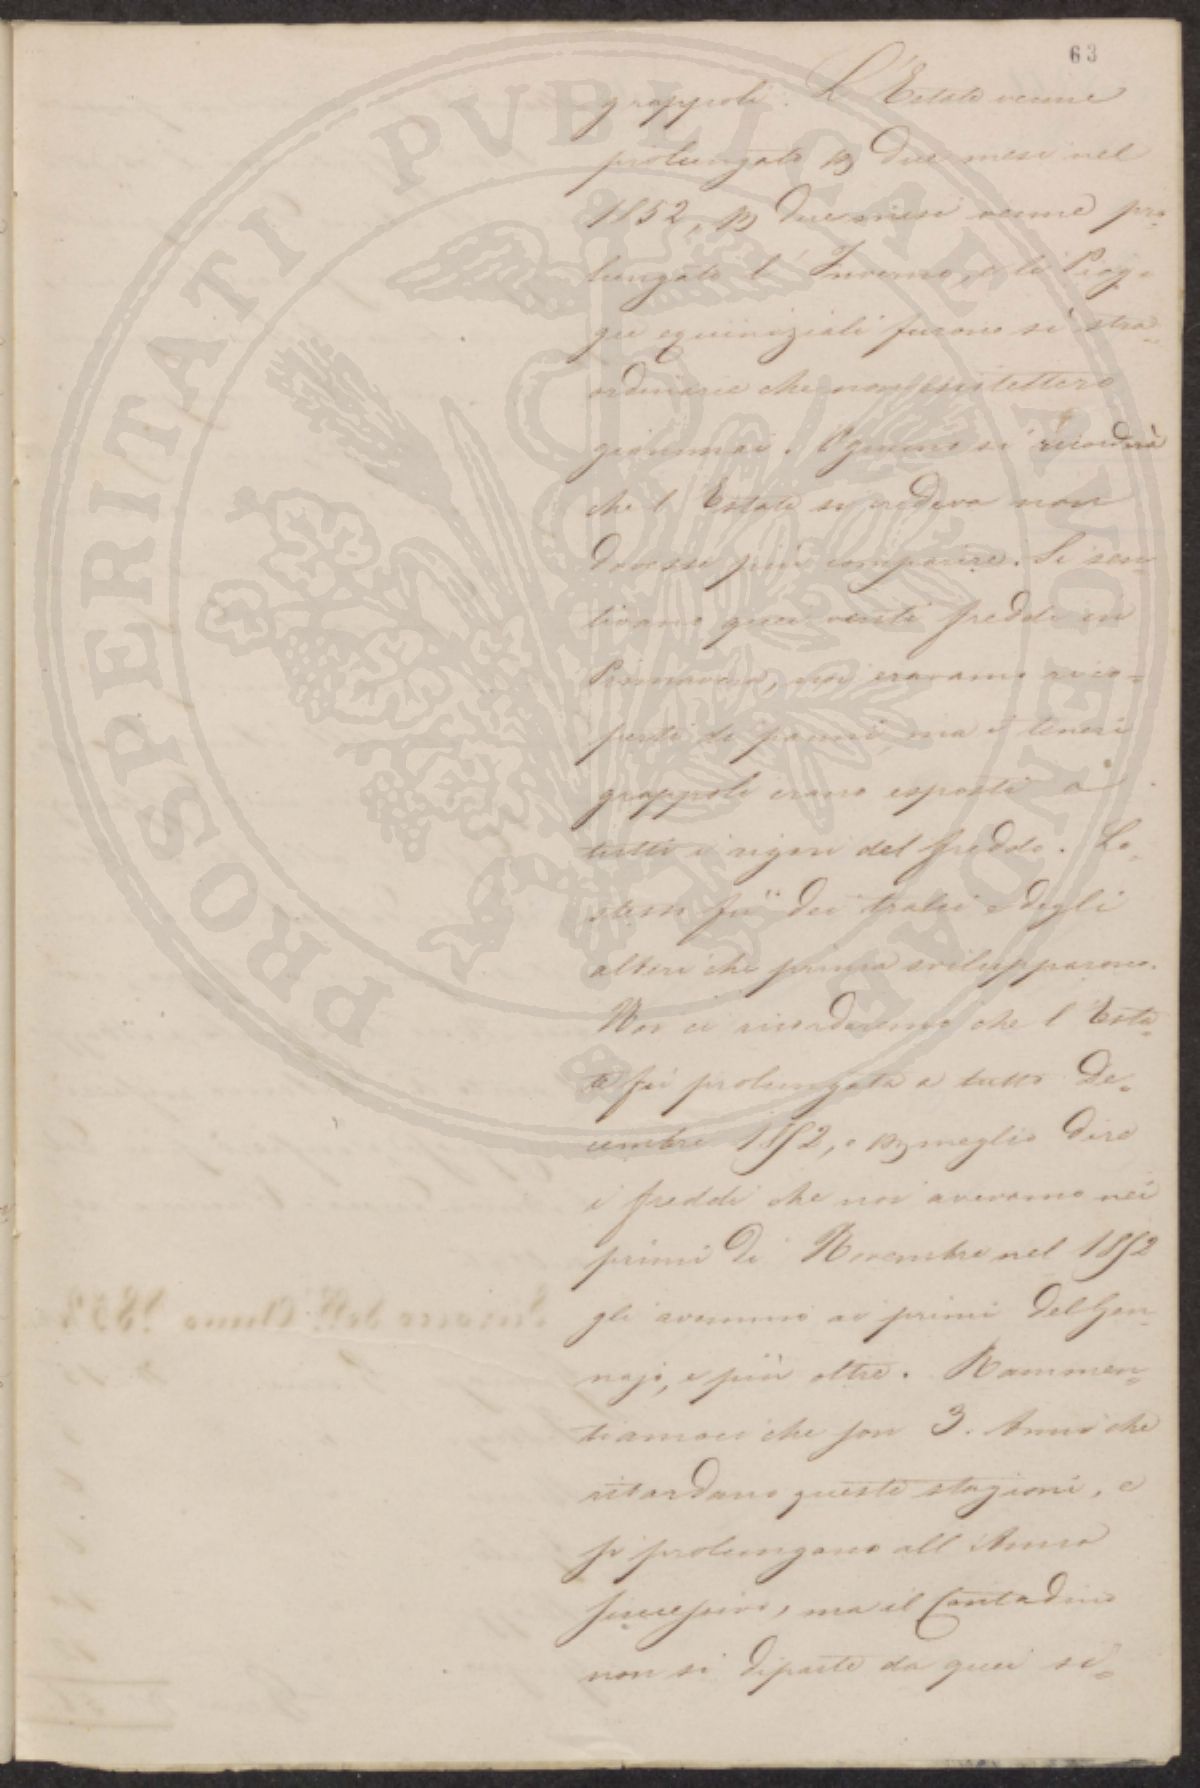 63
grappoli. L'Estate venne
prolungato p due mesi nel
1852, p due mesi venne pro=
lungato l'Inverno, e le Piog=
gie equinoziali furono sì stra=
ordinarie che non esistettero
giammai. Ognuno si ricorderà
che l'Estate si credeva non
dovesse più comparire. Si sen=
tivano quei venti freddi in
Primavera, noi eravamo rico=
perti di panni, ma i teneri
grappoli erano esposti a
tutti i rigori del freddo. Lo
stesso fù dei tralci e degli
alberi che prima svilupparono.
Noi ci ricorderemo che l'Esta=
te fù prolungata a tutto De=
cembre 1852, o p meglio dire
i freddi che noi avevamo nei
primi di Novembre nel 1852
gli avemmo ai primi del Gen=
najo, e più oltre. Rammen=
tiamoci che son 3. Anni che
ritardano queste stagioni, e
si prolungano all'Anno
successivo, ma il Contadino
non si diparte da quei si=
PROSPERITATI PVBLICAE AVGENDAE